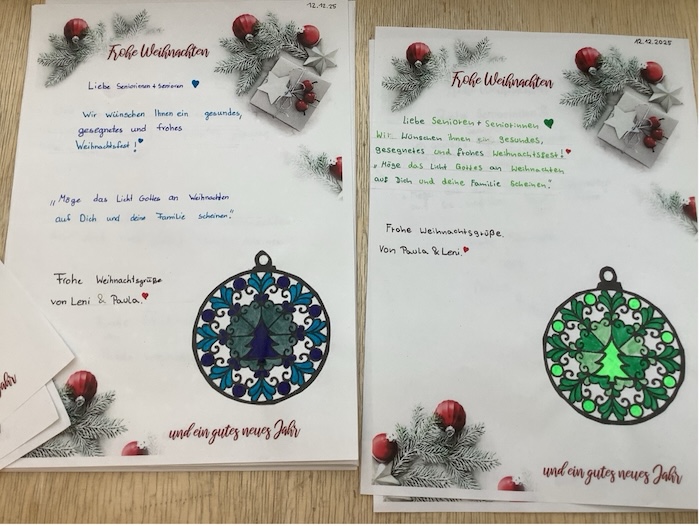 12.12.25
Frohe Weihnachten
Liebe Seniorinnen + Senioren
Wir wünschen Ihnen ein gesundes,
gesegnetes und frohes
Weihnachtsfest!
„Möge das Licht Gottes an Weihnachten
auf Dich und deine Familie scheinen."
Frohe Weihnachtsgrüße
von Leni & Paula.
und ein gutes neues Jahr
Jahr
12.12.2025
Frohe Weihnachten
Liebe Senioren + Seniorinnen
Wir wünschen Ihnen ein gesundes,
gesegnetes und frohes Weihnachtsfest!
„Möge das Licht Gottes an Weihnachten
auf Dich und deine Familie scheinen."
Frohe Weihnachtsgrüße.
von Paula & Leni.
und ein gutes neues Jahr